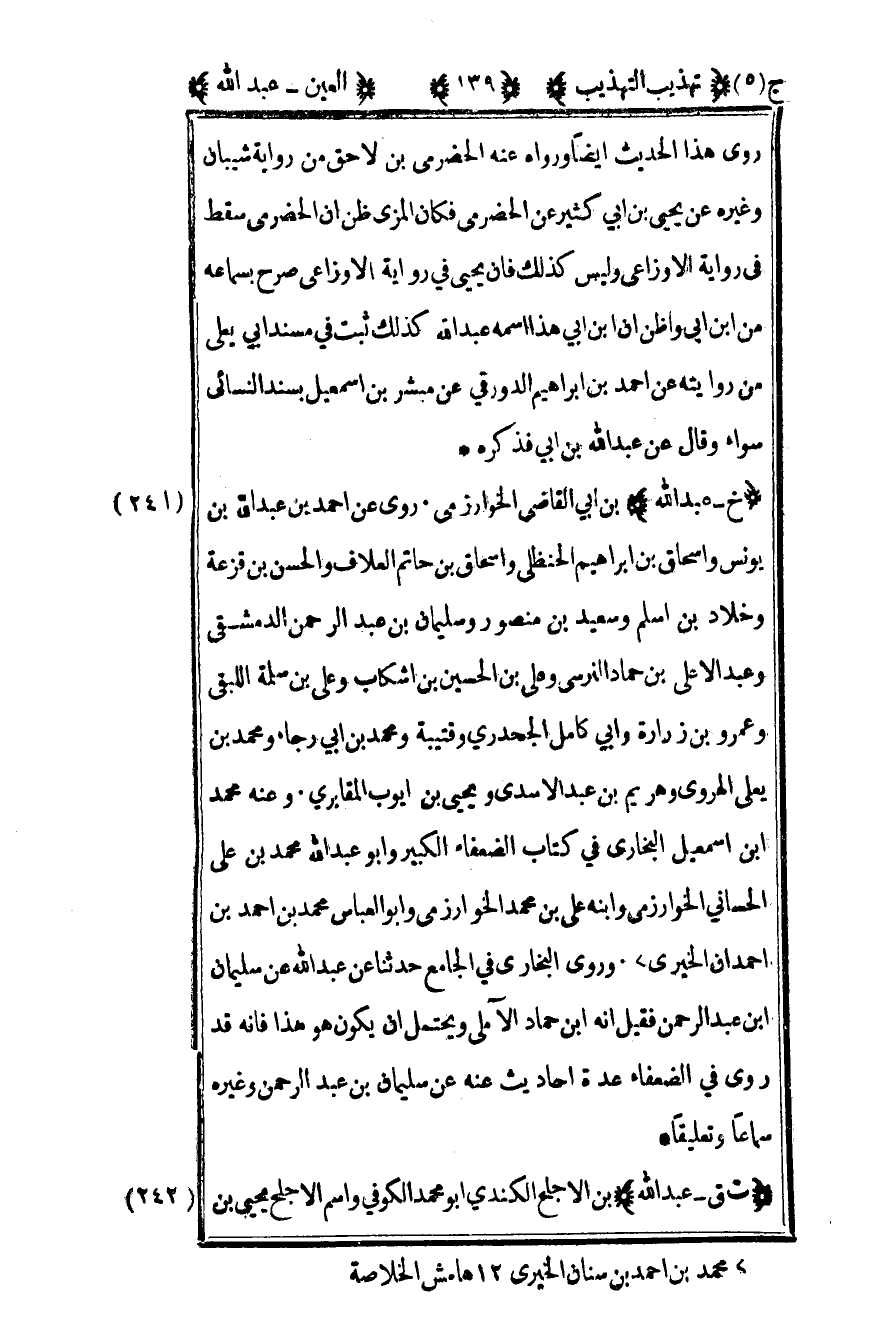 ج(٥) ﴿ تهذيب التهذيب ﴾ ﴿ ١٣٩ ﴾ ﴿ العين ـ عبد الله ﴾
روى هذا الحديث ايضاً ورواه عنه الحضرمى بن لاحق من رواية شيبان
وغيره عن يحيى بن ابي كثير عن الحضرمى فكان المزى ظن ان الحضرمى سقط
فى رواية الاوزاعى وليس كذلك فان يحيى في رواية الاوزاعى صرح بسماعه
من ابن ابى واظن ان ابن ابي هذا اسمه عبدالله كذلك ثبت في مسند ابي يعلى
من روايته عن احمد بن ابراهيم الدورقي عن مبشر بن اسمعيل بسند النسائى
سواء وقال عن عبدالله بن ابي فذكره *
﴿ خ ـ عبدالله ﴾ بن ابي القاضي الخوارزمى . روى عن احمد بن عبدالله بن (٢٤١)
يونس واسحاق بن ابراهيم الحنظلي واسحاق بن حاتم العلاف والحسن بن قزعة
وخلاد بن اسلم وسعيد بن منصور وسليمان بن عبد الرحمن الدمشقى
وعبد الاعلى بن حماد النرسى وعلى بن الحسين بن اشكاب وعلى بن سلمة اللبقى
وعمرو بن زرارة وابي كامل الجحدري وقتيبة ومحمد بن ابي رجاء ومحمد بن
يعلى الهروى وهريم بن عبد الاسدى ويحيى بن ايوب المقابري . وعنه محمد
ابن اسمعيل البخارى في كتاب الضعفاء الكبير وابو عبدالله محمد بن على
الحساني الخوارزمى وابنه على بن محمد الخوارزمى وابوالعباس محمد بن احمد بن
احمدان الخيرى > . وروى البخارى في الجامع حدثنا عن عبدالله عن سليمان
ابن عبدالرحمن فقيل انه ابن حماد الآملى ويحتمل ان يكون هو هذا فانه قد
روى في الضعفاء عدة احاديث عنه عن سليمان بن عبد الرحمن وغيره
سماعاً وتعليقاً *
﴿ ت ق ـ عبدالله ﴾ بن الاجلح الكندي ابو محمد الكوفي واسم الاجلح يحيى بن (٢٤٢)
> محمد بن احمد بن سنان الخيرى ١٢ هامش الخلاصة